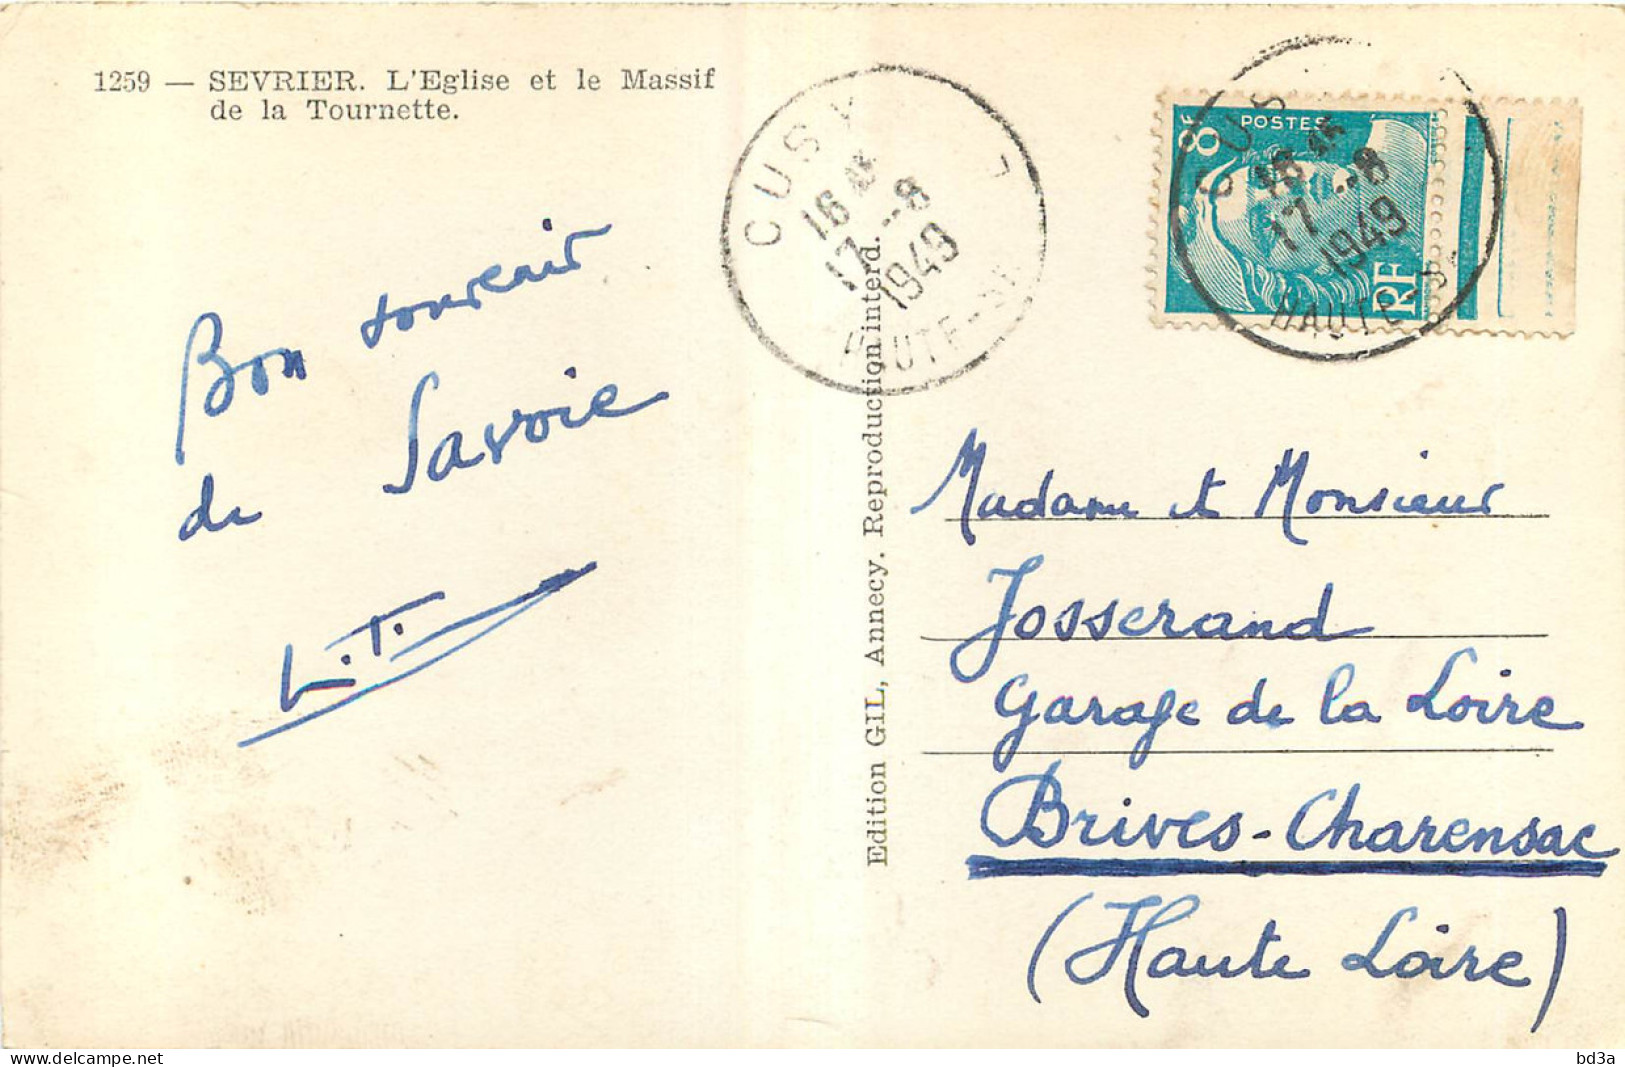 1259 — SEVRIER. L'Eglise et le Massif
de la Tournette.
Bon souvenir
de Savoie
L.T.
Edition GIL, Annecy. Reproduction interd.
CUSY
16 45
17 -8
1949
HAUTE-SE
8F
POSTES
RF
CUS
16 45
17 -8
1949
HAUTE-S
Madame et Monsieur
Josserand
Garage de la Loire
Brives-Charensac
(Haute Loire)
bd3a